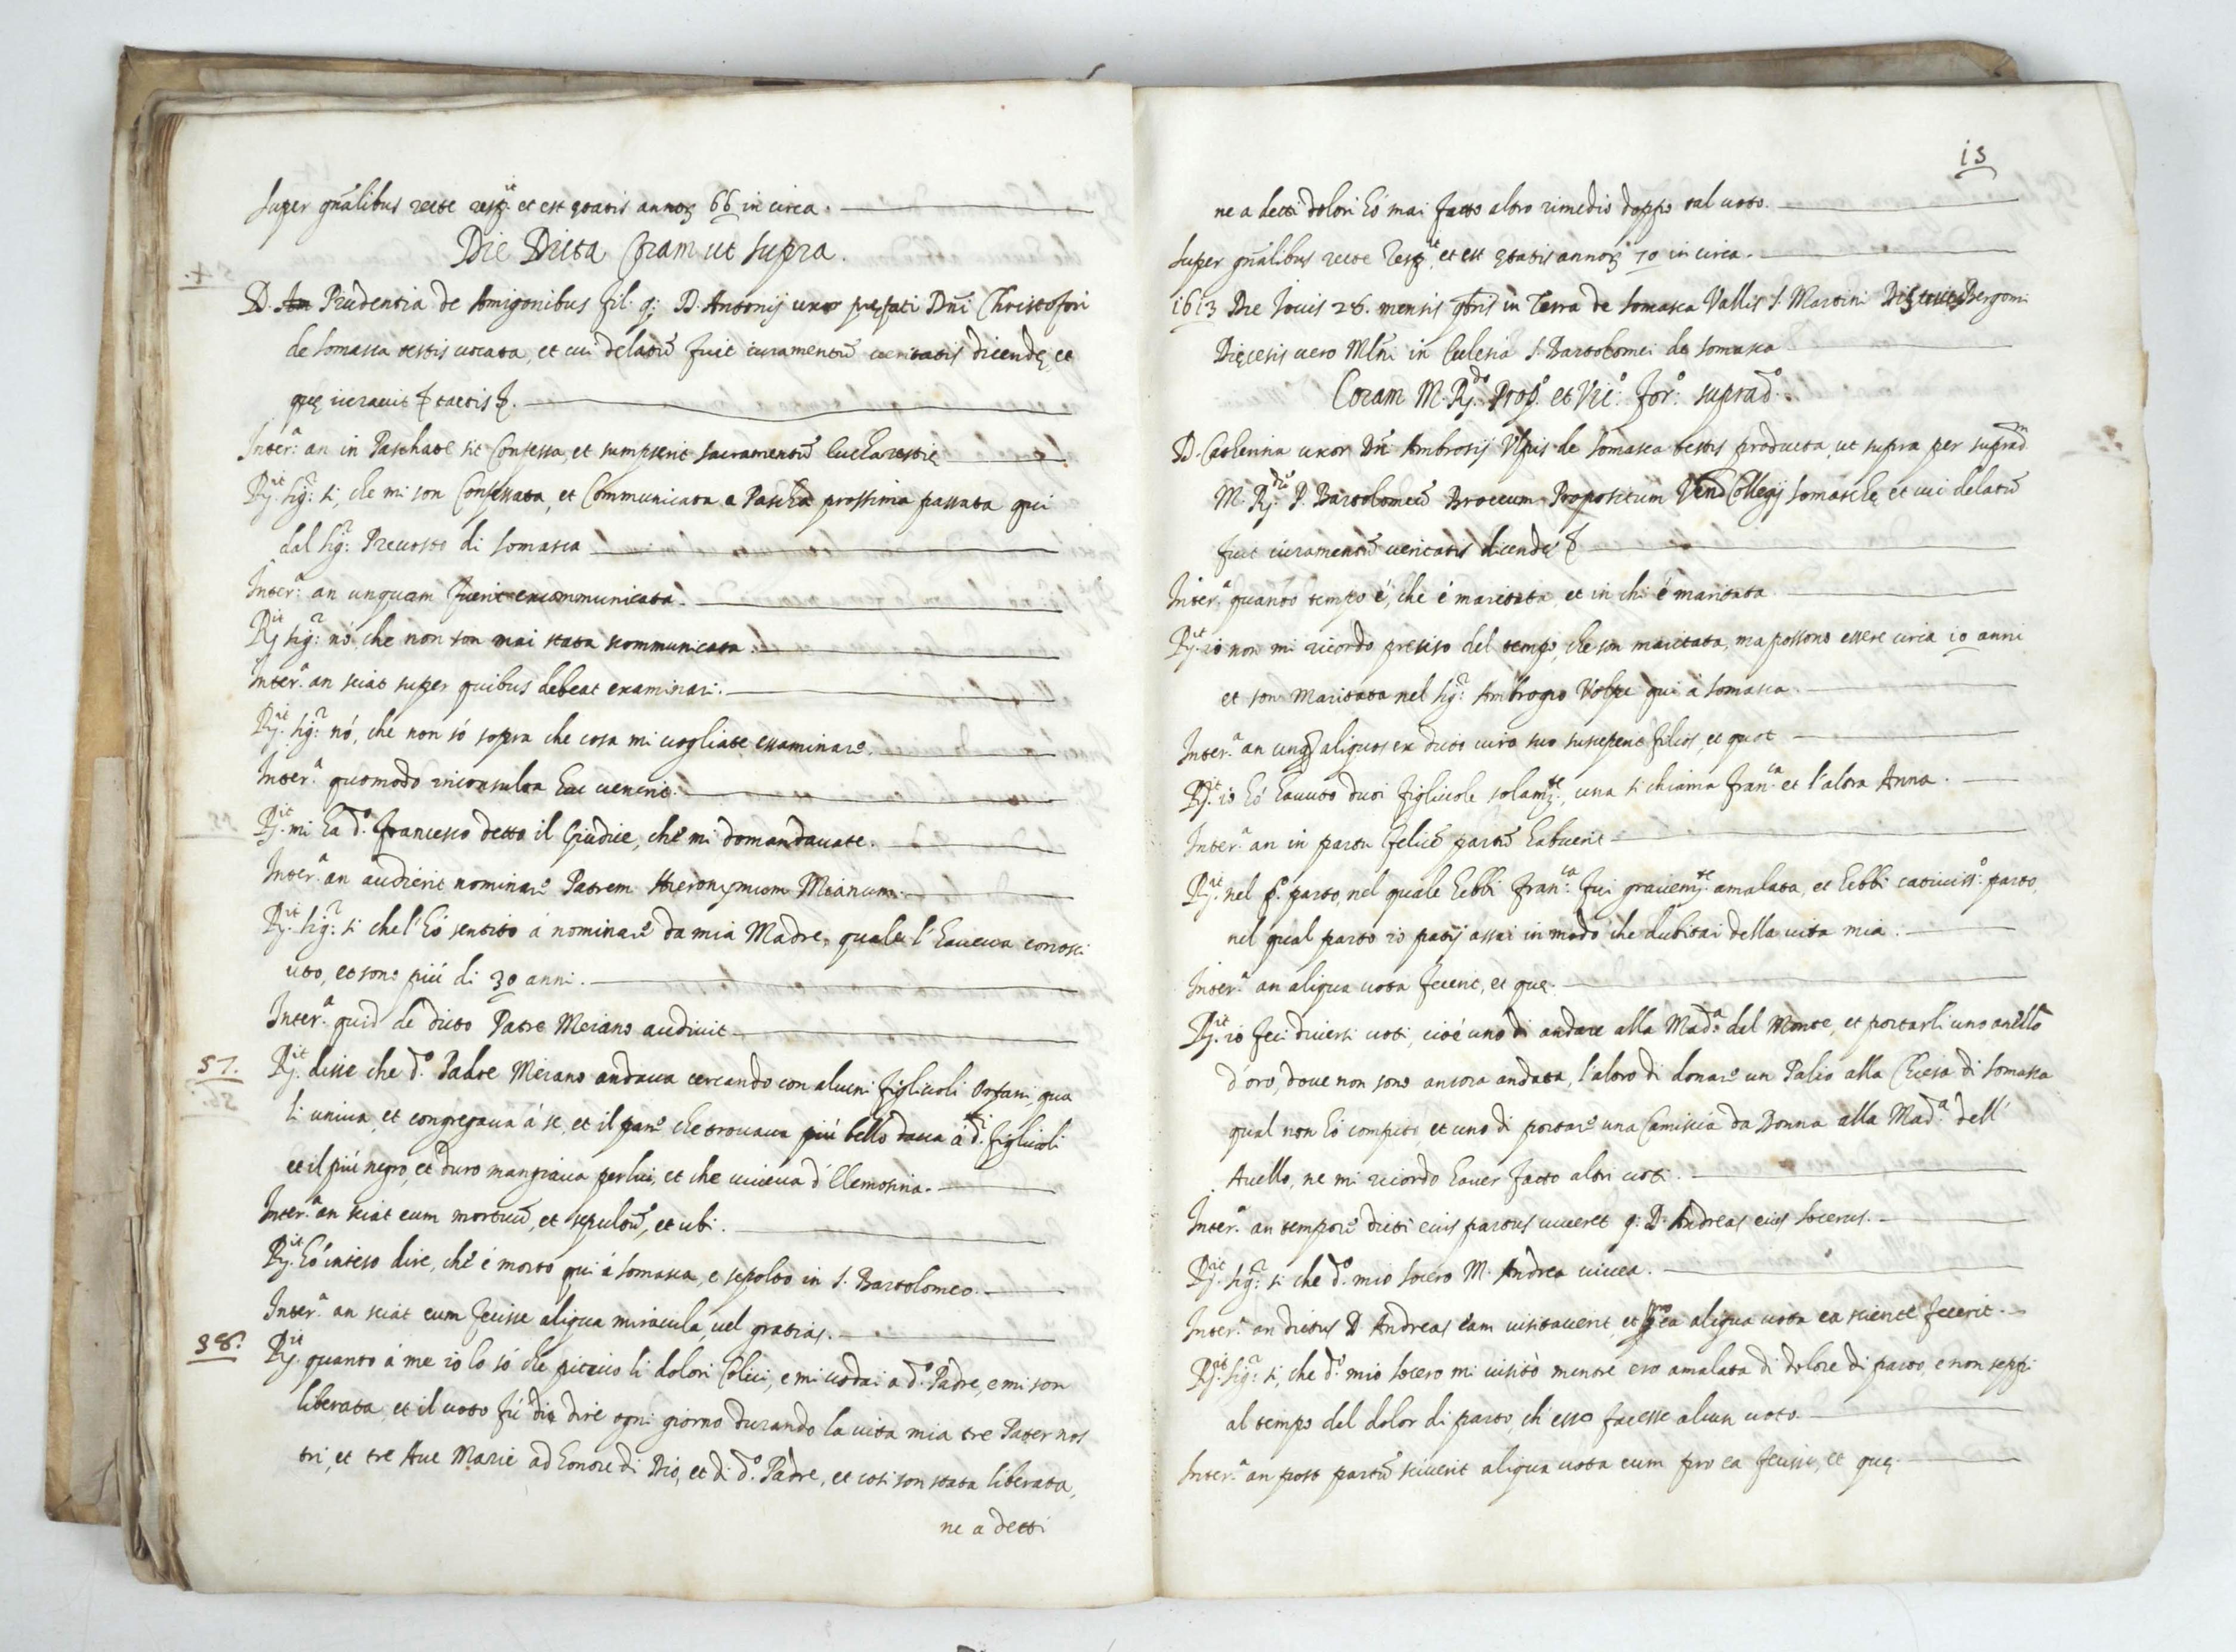 super gnãlibus recte resp.it et est ętatis annoꝝ 66 in circa.
Die Dicta Coram ut supra.
D. Prudentia de Amigonibus fil. q: D. Antonij uxor pręfati Dñi Christofori
de Somasca testis vocata, et cui delatũ fuit iuramentũ veritatis dicendę, et
quę iuravit tactis
Inter.a an in Paschate sit Confessa, et sumpserit sacramentũ Eucharestię
R.it sig.r si, che mi son Confessata, et Communicata a Pascha prossima passata qui
dal sig.r Prevosto di Somasca
Inter.a an unquam fuerit excommunicata.
R.it sig.r nò che non son mai stata scommunicata.
Inter.a an sciat super quibus debeat examinari.
R.it sig.r nó, che non só sopra che cosa mi vogliate essaminare.
Inter.a quomodo inconsulta huc venerit.
R.it mi ha d.o Francesco detto il Giudice, che mi domandavate.
Inter.a an audierit nominare Patrem Hieronymum Meianum.
R.it sig.r si che l'hó sentito á nominare da mia Madre, quale l'haveva conosci
uto, et sono piú di 30 anni.
Inter.a quid de dicto Patre Meiano audivit
57. R.it disse che d.o Padre Meiano andava cercando con alcuni figlivoli Orfani, qua
li univa, et congregava á se, et il pane che trovava piú bello dava á d.ti figlivoli
et il piú negro, et duro mangiava per lui, et che viveva d'Elemosina.
Inter.a an sciat eum mortuũ, et sepultũ, et ubi.
R.it hó inteso dire, che é morto qui á Somasca, e sepolto in S. Bartolomeo.
Inter.a an sciat eum fecisse aliqua miracula, vel gratias.
58. R.it quanto á me io lo só che pativo li dolori Colici, e mi votai a d.o Padre, e mi son
liberata, et il voto fú di dire ogni giorno durando la vita mia tre Pater nos
tri, et tre Ave Marie ad honore di Dio, et di d.o Padre, et cosi son stata liberata,
ne a detti
13
ne a detti dolori hó mai fatto altro rimedio doppo tal voto.
super gnãlibus recte resp.it, et est ętatis annoꝝ 70 in circa.
1613 Die Jovis 28. mensis 9bris in Terra de Somasca Vallis S. Martini Bergomi
Dięcesis vero Mlñi in Ecclesia S. Bartolomei de Somasca
Coram M. R.do Prop.o et Vic.o For.o suprad.o
D. Catherina uxor Dñi Ambrosij Vlpis de Somasca testis producta, ut supra per suprad.m
M. R.dũ P. Bartolomeũ Broccum Propositum Ven.di Collegij Somaschę, et cui delatũ
fuit iuramentũ veritatis dicendę
Inter.a quanto tempo é, che é maritata, et in chi é maritata
R.it io non mi ricordo preciso del tempo, che son maritata, ma possono essere circa 10 anni
et son Maritata nel sig.r Ambrogio Volpe qui á Somasca.
Inter.a an unq̃ aliquos ex dicto viro suo susceperit filios, et quot
R.it io hó havuto duoi figlivole solam.te, una si chiama Fran.ca et l'altra Anna.
Inter.a an in partu felicẽ partũ habuerit
R.it nel p.o parto, nel quale hebbi Fran.ca fui gravem.te amalata, et hebbi cativiss.o parto,
nel qual parto io patij assai in modo che dubitai della vita mia.
Inter.a an aliqua vota fecerit, et quę.
R.it io feci diversi voti, cioé uno di andare alla Mad.a del Monte, et portarli uno anello
d'oro, dove non sono ancora andata, l'altro di donare un Palio alla Chiesa di Somasca
qual non hó compito, et uno di portare una Camiscia da Donna alla Mad.a dell'
Avello, ne mi ricordo haver fatto altri voti.
Inter.a an tempore dicti eius partus viveret q: D. Andreas eius socerus.
R.it sig.r si che d.o mio socero M. Andrea vivea.
Inter.a an dictus D. Andreas eam visitaverit, et pro ea aliqua vota ea sciente fecerit.
R.it sig.r si, che d.o mio socero mi visitò mentre ero amalata di dolore di parto, e non seppi
al tempo del dolor di parto, ch'esso facesse alcun voto.
Inter.a an post partũ sciverit aliqua vota eum pro ea fecisse, et quę.